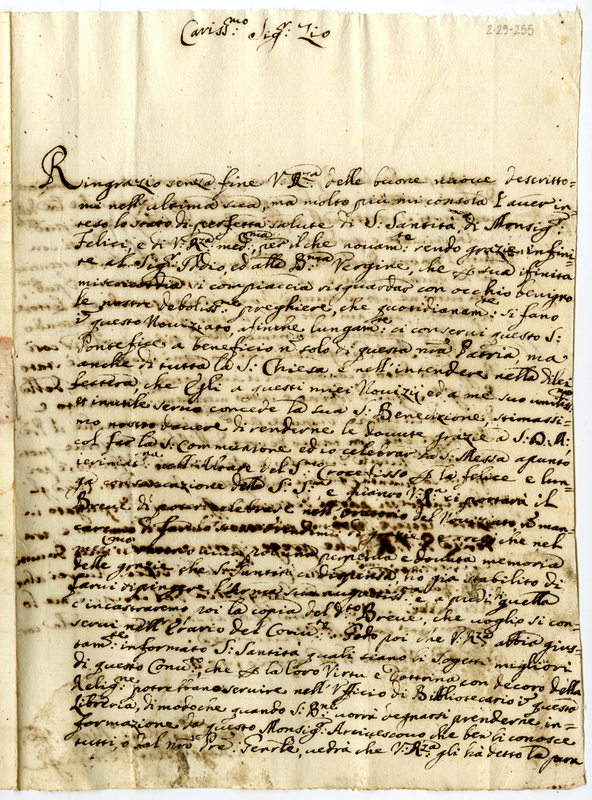 2-29-255
Cariss.mo Sig.r Zio
Ringrazio senza fine V: R.za delle buone nuove descritto=
mi nell'ultima sua, ma molto più mi consola l'aver in=
teso lo stato di perfetta salute di S: Santità, di Monsig.r
Felici, e di V: R.za med.ma, per il che novam.e rendo grazie infini=
te al Sig.r Iddio, ed alla B.ma Vergine, che p sua ifinita
misericordia si compiaccia risguardar con occhio benigno
le nostre deboliss.me preghiere, che quotidianam.e si fano
i questo Noviziato, afinche lungam.e ci conservi questo S:
Pontefice a beneficio n solo di questa nra Patria, ma
anche di tutta la S: Chiesa, e nell'intendere nella di lei
Lettera, che Egli a questi miei Novizi, ed a me suo umiliss.
et inutile servo concede la sua S: Benedizione, stimassi=
mo nostro dovere di renderne le dovute grazie a S: D: M:
col far la S: Communione ed io celebrar la S: Messa apunto
nell'Altare del S.mo Crocefisso p la felice e lun=
ga conservazione della S: S.tà, e quando V: R.a ci portarà il
Breve di poter celebrare nell'Oratorio del Noviziato, ò man=
che nel
perpetua e dovuta memoria
delle grazie che S: Santità ci dispensa, ho già stabilito di
farvi dipingere l'Arma sua e a piedi di quella
c'incastraremo poi la copia del d.to Breve, che voglio si con=
servi nell'Erario del Conv.to Godo poi che V: R.za abbia gius=
tam.te informato S: Santità quali siano li Sogetti migliori
di questo Conv.to, che p la loro Virtù e Dottrina con decoro della
Relig.ne potrebbano servire nell'Ufficio di Bibliotecario i questa
Libreria, di modo che quando S: B.ne vorrà degnarsi prenderne in=
formazione da questo Monsig.r Arcivescovo che ben li conosce
tutti, ò dal nro Pre: Genrle, vedrà che V: R.za gli hà detto la pura